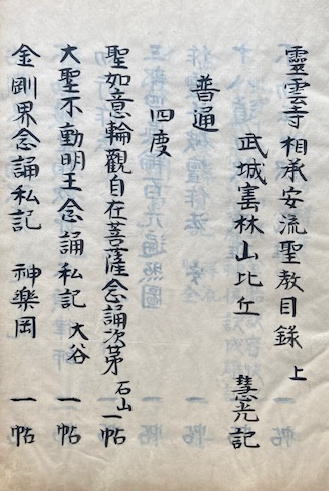 靈雲寺相承安流聖教目錄 上
武城寳林山比丘 慧光記
普通
四度
聖如意輪觀自在菩薩念誦次第 石山 一帖
大聖不動明王念誦私記 大谷 一帖
金剛界念誦私記 神樂岡 一帖